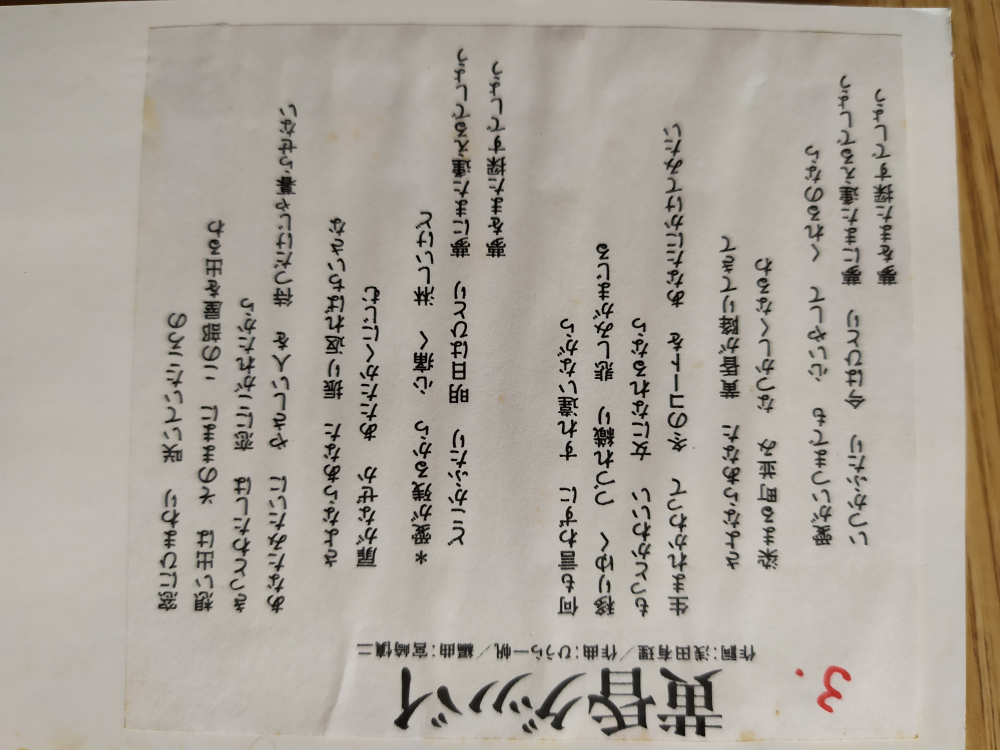 3.
黄昏グッバイ
作詞:浅田有理/作曲:ひうら一帆/編曲:宮崎慎二
窓にひまわり　咲いていたころの
想い出は　そのままに　この部屋を出るわ
きっとわたしは　恋にこがれたから
あなたみたいに　やさしい人を　待つだけじゃ暮らせない
さよならあなた　振り返ればちいさな
扉がなぜか　あたたかくにじむ
*愛が残るから　心痛く　淋しいけど
どこかふたり　明日はひとり　夢にまた逢えるでしょう
夢をまた探すでしょう
何も言わずに　すれ違いながら
移りゆく　つづれ織り　悲しみがまじる
もっとかわいい　女になれるなら
生まれかわって　冬のコートを　あなたにかけてみたい
さよならあなた　黄昏が降りてきて
染まる町並み　なつかしくなるわ
愛がいつまでも　心いやして　くれるのなら
いつかふたり　今はひとり　夢にまた逢えるでしょう
夢をまた探すでしょう